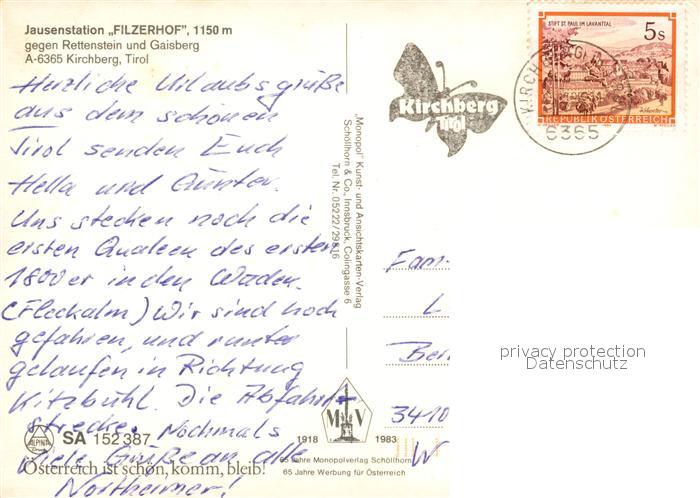 Jausenstation „FILZERHOF", 1150 m
gegen Rettenstein und Gaisberg
A-6365 Kirchberg, Tirol
Herzliche Urlaubsgrüße
aus dem schönen
Tirol senden Euch
Hella und Günter.
Uns stecken noch die
ersten Qualen des ersten
1800er in den Waden.
(Fleckalm) Wir sind hoch
gefahren, und runter
gelaufen in Richtung
Kitzbühl. Die Abfahrts-
strecke. Nochmals
viele Grüße an alle
Northeimer!
ALPINA
SA 152 387
Österreich ist schön, komm, bleib!
„Monopol" Kunst- und Ansichtskarten-Verlag
Schöllhorn & Co., Innsbruck, Colingasse 6
Tel. Nr. 05222/29816
Kirchberg
Tirol
6365
STIFT ST. PAUL IM LAVANTTAL
5s
REPUBLIK ÖSTERREICH
Fam.
L
Ber
3410
W
M V
1918 1983
65 Jahre Monopolverlag Schöllhorn
65 Jahre Werbung für Österreich
privacy protection
Datenschutz